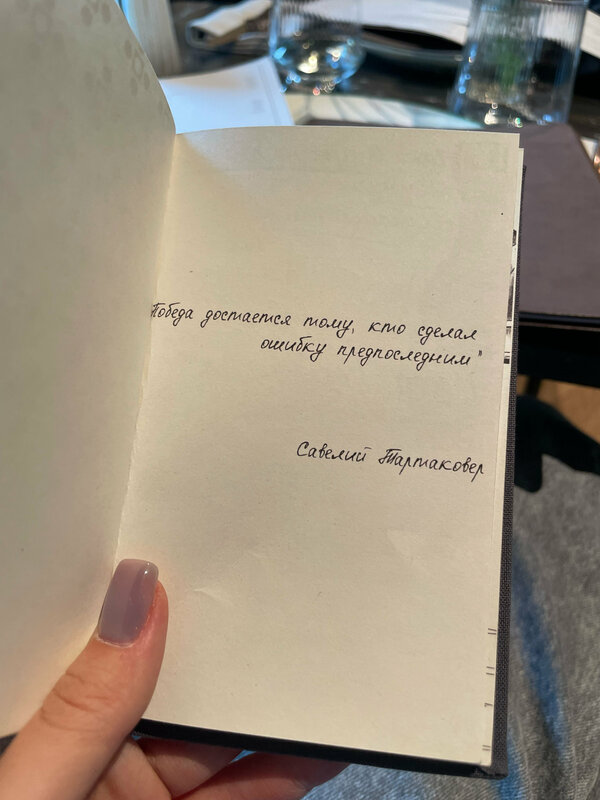 "Победа достается тому, кто сделал
ошибку предпоследним"
Савелий Тартаковер